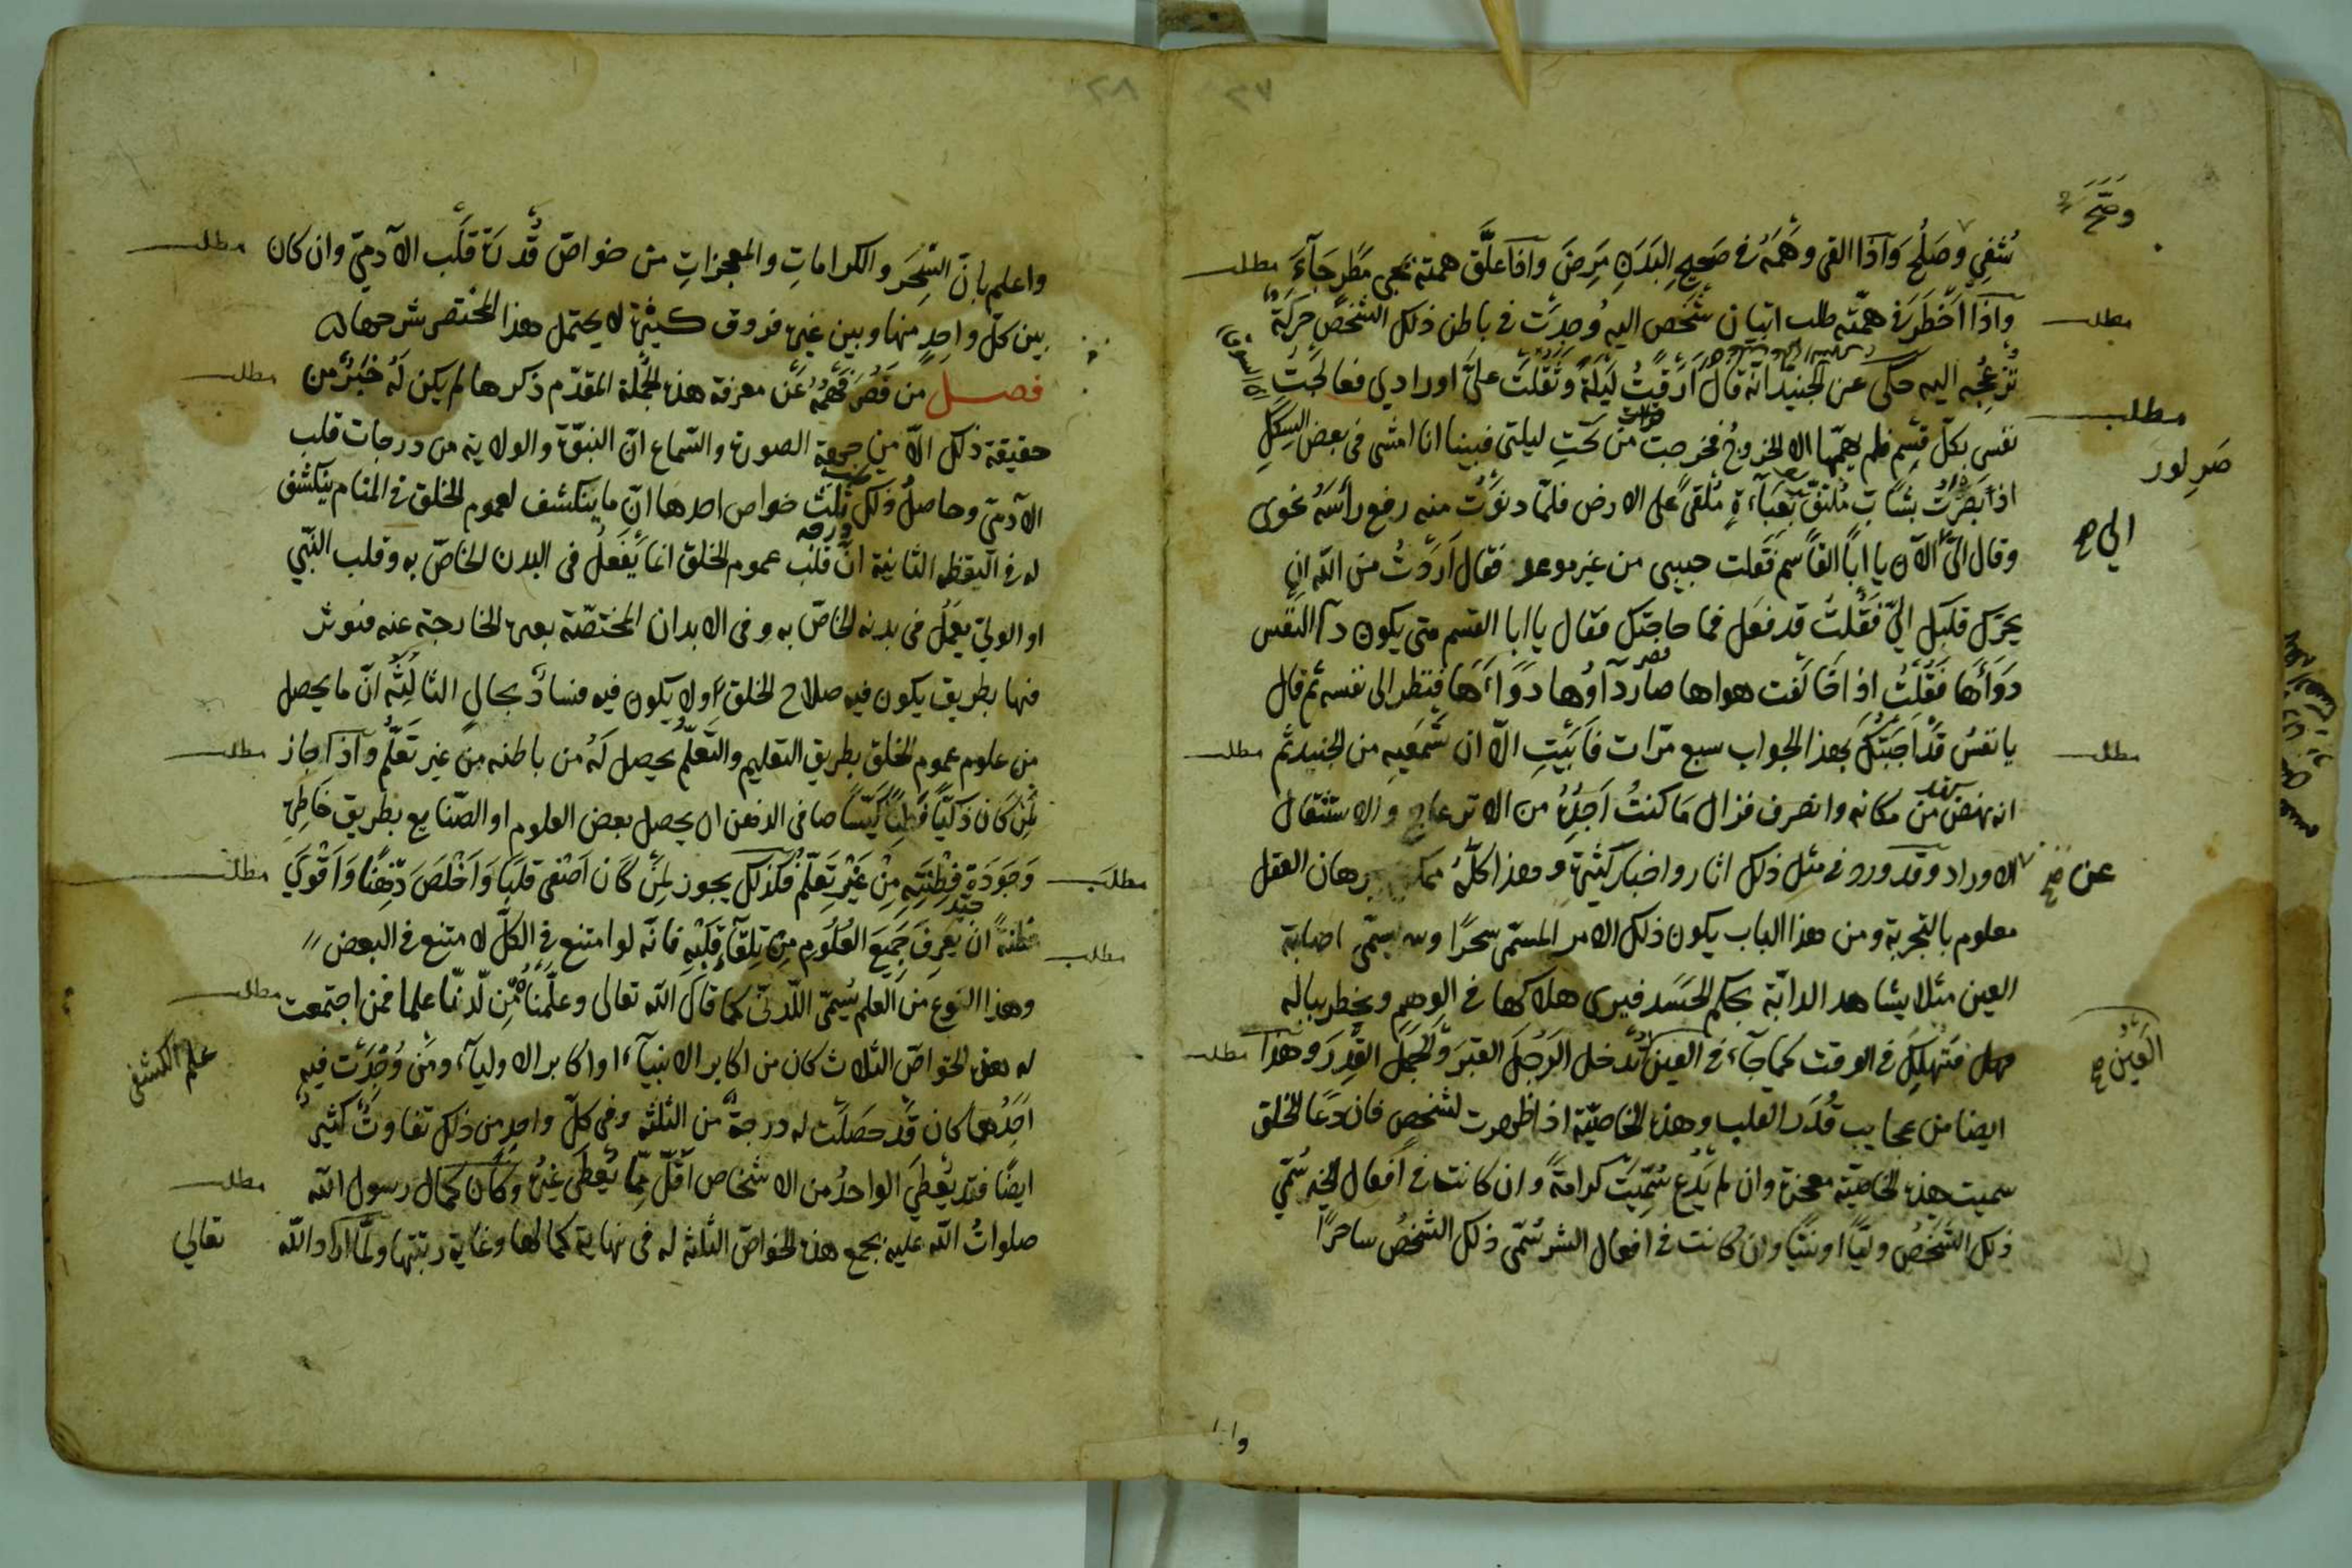 ٢٧
وصح
شفى وصلح وَاذا القى وهمه فى صحيح البدن مرض واذا علّق همته بمجى مطرٍ جآء
مطلب
واذا اخطر فى همّته طلب اتيان شخص اليه وُجدت فى باطن ذلك الشخص حركة
مطلب
تزعجه اليه حكى عن الجنيد انّه قال ارقت ليلة وثقلت علىّ اورادي فعالجت
نفسى بكلّ قسم فلم يهمّها الا الخروج فخرجت من تحتِ ليلتى فبينا انا امشى فى بعض السكك
مطلب
اذا بصرت بشابّ ملتفّ بعبآءةٍ مُلقىً على الارض فلمّا دنوت منه رفع رأسه نحوى
وقال الىّ الآن يا ابا القاسم فقلت حبيبى من غير موعد فقال اردتُ من اللّه ان
الي صح
يحرّك قلبك الىّ فقلتُ قد فعل فما حاجتك فقال يا ابا القسم متى يكون دآ النفس
دوأها فقلتُ اذا خالفت هواها صار دآؤها دوآءها فنظر الى نفسه ثم قال
يا نفسُ قد اجبتك بهذا الجواب سبع مرّات فابيتِ الّا ان تسمعيه من الجنيد ثم
مطلب
انه نهض من مكانه وانصرف فزال ما كنتُ اجده من الانزعاج والاستثقال
عن صح
الاوراد وقد ورد فى مثل ذلك اثار واخبار كثيرة وهذا كلّه ممكن ببرهان العقل
معلوم بالتجربة ومن هذا الباب يكون ذلك الامر المسمّى سحرًا وبه يسمّى اصابة
العين مثلا يشاهد الدابّة بحكم الحسد فيرى هلاكها فى الوهم ويخطر بباله
فهل فتهلك فى الوقت كما جآء فى العين تُدخل الرجلَ القبرَ والجملَ القدرَ وهذا
العين صح
مطلب
ايضا من عجايب قُدَر القلب وهذه الخاصّيّة اذا ظهرت لشخصٍ فان دعا الخلق
سميت هذه الخاصيّة معجزة وان لم يدع سُمّيت كرامةً وان كانت فى افعال الخير سُمّي
ذلك الشخصُ وليّا او نبيّا وان كانت فى افعال الشر سُمّى ذلك الشخصُ ساحرًا
٢٨
واعلم بانّ السّحر والكرامات والمعجزاتِ من خواصّ قُدرة قلب الآدميّ وان كان
مطلب
بين كلّ واحدٍ منها وبين غيره فروق كثيرة لا يحتمل هذا المختصر شرحها
فصل من قصر فهمه عن معرفة هذه الجملة المقدّم ذكرها لم يكن له خبرٌ من
مطلب
حقيقة ذلك الّا من جهة الصورة والسّماع انّ النبوّة والولاية من درجات قلب
الآدمىّ وحاصلُ ذلك ثلث خواص احدها انّ ما ينكشف لعموم الخلق فى المنام ينكشف
له فى اليقظه الثانية انّ قلب عموم الخلق انما يفعل فى البدن الخاصّ به وقلب النّبيّ
او الوليّ يعمل فى بدنه الخاصّ به وفى الابدان المختصّة بغيره الخارجة عنه فتوثر
فيها بطريق يكون فيه صلاح الخلق او لا يكون فيه فساد بحالٍ الثالثه انّ ما يحصل
من علوم عموم الخلق بطريق التعليم والتعلّم يحصل لهُ من باطنه من غير تعلّم واذا جاز
مطلب
لمن كان ذكيّا فطنًا كيّسا صافى الذهن ان يحصل بعض العلوم او الصّنايع بطريق خاطره
وجودة فطنته من غير تعلّم فكذلك يجوز لمن كان اصفى قلبًا واخلص ذهنا واقوي
مطلب
فطنةً ان يعرف جميع العلوم من تلقآءِ قلبه فانّه لو امتنع فى الكلّ لامتنع فى البعض
مطلب
وهذا النوع من العلم يُسمّى اللّدنّى كما قال اللّه تعالى وعلّمناه من لّدنّا علما فمن اجتمعت
مطلب
له هذه الخواصّ الثلاث كان من اكابر الانبيآء او اكابر الاوليآء ومن وُجدت فيه
علم الكشفى
احدها كان قد حصلت له درجة من الثلثة وفى كلّ واحدٍ من ذلك تفاوتٌ كثير
ايضًا فقد يعطى الواحدُ من الاشخاص اقلّ ممّا يُعطى غيره وكان كمال رسول اللّه
مطلب
صلواتُ اللّه عليه بجمع هذه الخواصّ الثلثة له فى نهاية كمالها وغاية رتبتها ولمّا اراد اللّه
تعالي